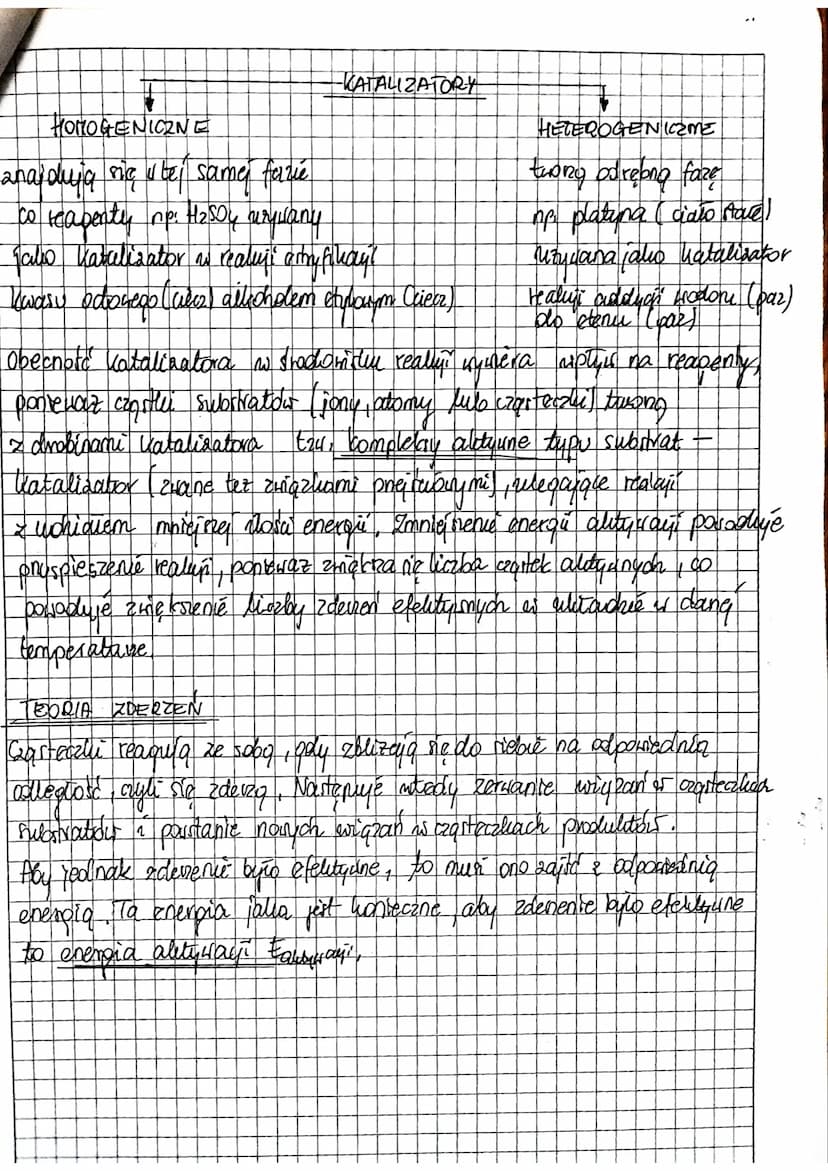 KATALIZATORY
HOMOGENICZNE
HETEROGENICZNE
znajdują się w tej samej fazie
tworzą odrębną fazę
co reagenty np. H2SO4 używany
np. platyna (ciało stałe)
jako katalizator w reakcji estryfikacji
używana jako katalizator
kwasu octowego (ciecz) alkoholem etylowym (ciecz)
reakcji addycji wodoru (gaz)
do etenu (gaz)
Obecność katalizatora w środowisku reakcji wywiera wpływ na reagenty,
ponieważ cząstki substratów (jony, atomy lub cząsteczki) tworzą
z drobinami katalizatora tzw. kompleksy aktywne typu substrat –
katalizator (zwane też związkami przejściowymi), ulegające reakcji
z udziałem mniejszej ilości energii. Zmniejszenie energii aktywacji powoduje
przyspieszenie reakcji, ponieważ zwiększa się liczba cząstek aktywnych, co
powoduje zwiększenie liczby zderzeń efektywnych w układzie w danej
temperaturze.
TEORIA ZDERZEŃ
Cząsteczki reagują ze sobą, gdy zbliżają się do siebie na odpowiednią
odległość, czyli się zderzą. Następuje wtedy zerwanie wiązań w cząsteczkach
substratów i powstanie nowych wiązań w cząsteczkach produktów.
Aby jednak zderzenie było efektywne, to musi ono zajść z odpowiednią
energią. Ta energia jaka jest konieczna, aby zderzenie było efektywne
to energia aktywacji Eaktywacji.